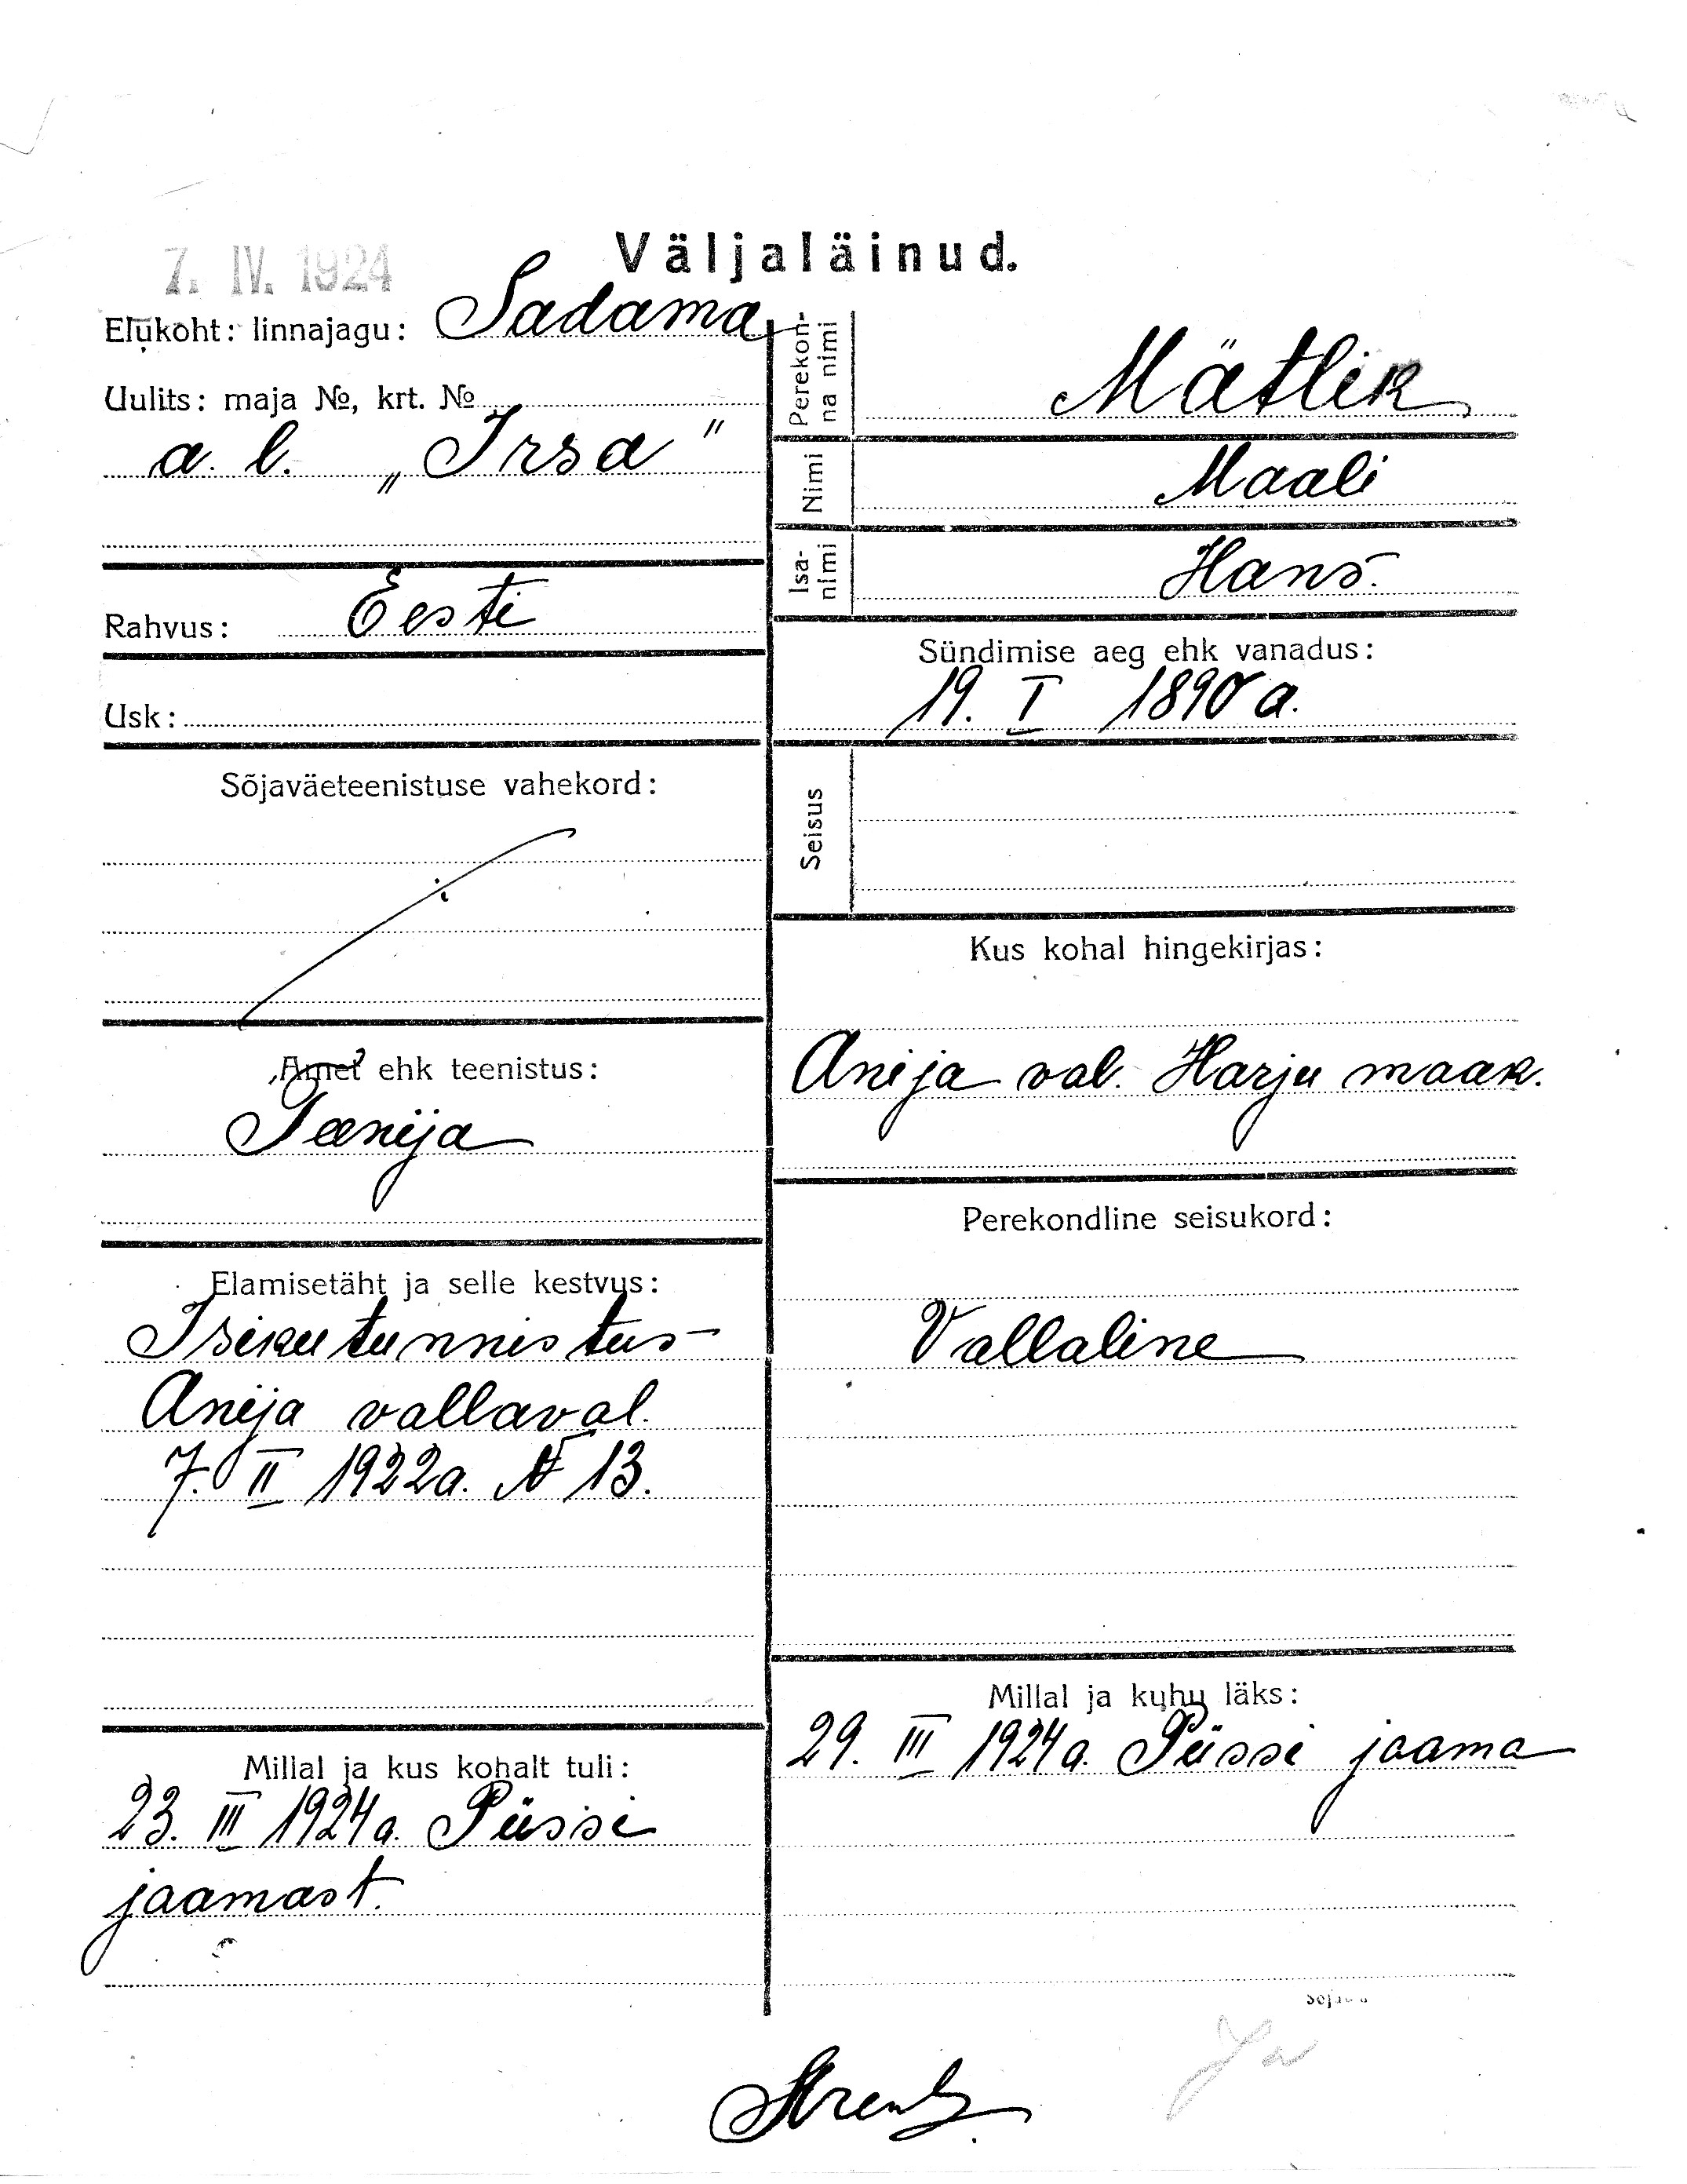 Väljaläinud.
7. IV. 1924
Elukoht: linnajagu: Sadama
Uulits: maja №, krt. №
a. l. „Irsa"
Rahvus: Eesti
Usk:
Sõjaväeteenistuse vahekord:
Amet ehk teenistus:
Teenija
Elamisetäht ja selle kestvus:
Isikutunnistus
Anija vallaval.
7. II 1922a. № 13.
Millal ja kus kohalt tuli:
23. III 1924a. Püssi
jaamast.
Perekon-
na nimi
Mätlik
Nimi
Maali
Isa-
nimi
Hans.
Sündimise aeg ehk vanadus:
19. I 1890 a.
Seisus
Kus kohal hingekirjas:
Anija val. Harju maak.
Perekondline seisukord:
Vallaline
Millal ja kuhu läks:
29. III 1924a. Püssi jaama